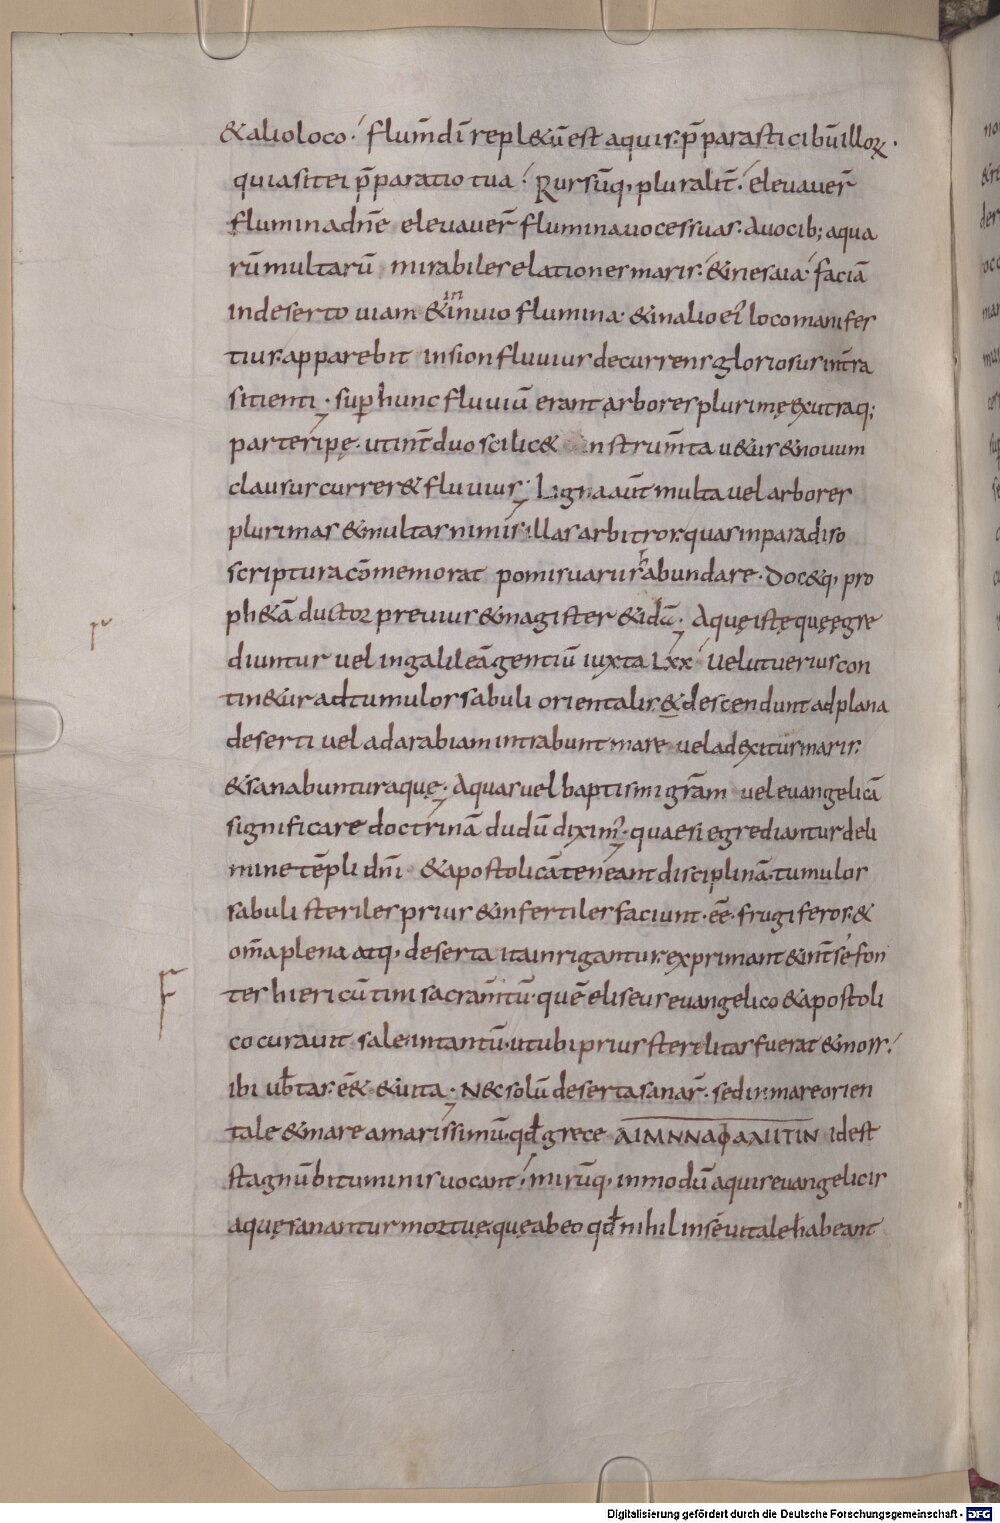 & alio loco· flum̄ dī repl&ū est aquis· p̄parasti cibū illoꝝ·
quia sit ei p̄paratio tua· Rursūq, pluralit̄· elevaver̄
flumina dn̄e elevaver̄ flumina voces suas· A vocib; aqua
rū multarū mirabiles elationes maris· & in esaia· faciā
in deserto viam & in invio flumina· & in alio ei' loco manifes
tius· apparebit in sion fluvius decurrens gloriosus in t̄ra
sitienti· sup hunc fluviū erant arbores plurimę ex utraq;
parte ripę· ut int̄ duo scilic& instrum̄ta v&us & novum
clausus currer& fluvius· Ligna aūt multa vel arbores
plurimas & multas nimis· illas arbitror· quas in paradiso
scriptura cōmemorat pomis varus abundare· Doc&q, pro
ph&ā ductor previus & magister & id ā· Aquę istę quę egre
diuntur vel in galileā gentiū iuxta Lxx· Vel ut verius con
tin&ur ad tumulos sabuli orientalis· & descendunt ad plana
deserti vel ad arabiam intrabunt mare vel ad exitus maris·
& sanabuntur aquę· Aquas vel baptismi grām vel evangelicā
significare doctrinā dudū dixim'· quae si egrediantur de li
mine tēpli dn̄i & apostolicā teneant disciplinā· tumulos
sabuli steriles prius & infertiles faciunt· ēē· frugiferos· &
om̄a plena atq, deserta ita inrigantur· exprimant & int̄ se fon
tes hiericūtini sacram̄tū· quē eliseus evangelico & apostoli
co curavit sale· in tantū· ut ubi prius sterelitas fuerat & mors·
ibi ub̄tas· ēē& & vita· N& solū deserta sanar̄· sed in mare orien
tale & mare amarissimū· qđ grece ΛΙΜΝΝΑΦΑΛΙΤΙΝ id est
stagnū bituminis vocant· mirūq, in modū aquis evangelicis
aquę sanantur mortuę· quę ab eo qđ nihil in se vitale habeant
Digitalisierung gefördert durch die Deutsche Forschungsgemeinschaft - DFG